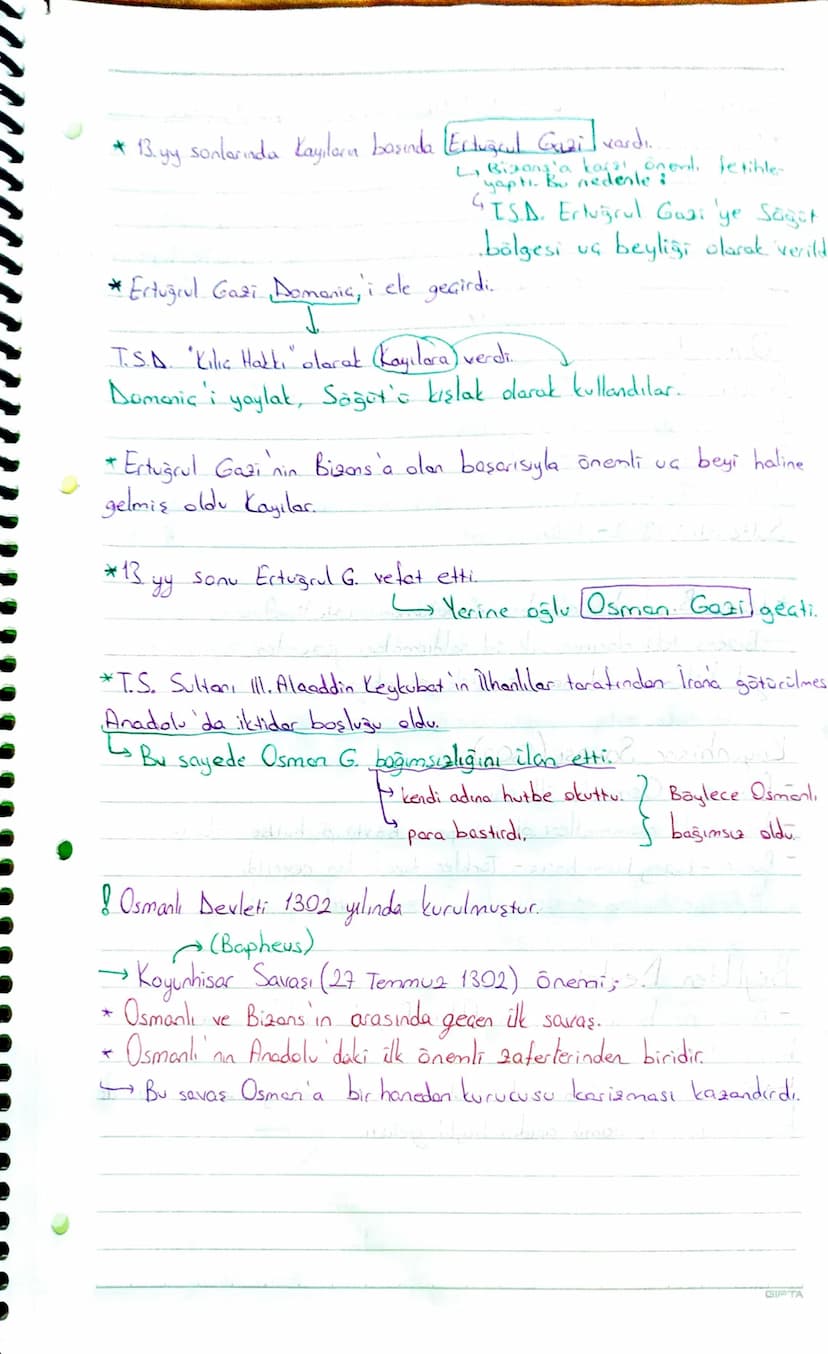 * 13.yy sonlarında Kayıların başında Ertuğrul Gazi vardı.
↳ Bizans'a karşı önemli fetihle-
yaptı. Bu nedenle;
↳ T.S.D. Ertuğrul Gazi'ye Söğüt
bölgesi uç beyliği olarak verild
* Ertuğrul Gazi Domaniç'i ele geçirdi.
↓
T.S.D. "Kılıç Hakkı" olarak Kayılara verdi.
Domaniç'i yaylak, Söğüt'ü kışlak olarak kullandılar.
* Ertuğrul Gazi'nin Bizans'a olan başarısıyla önemli uç beyi haline
gelmiş oldu Kayılar.
* 13 yy sonu Ertuğrul G. vefat etti.
↳ Yerine oğlu Osman Gazi geçti.
* T.S. Sultanı III. Alaaddin Keykubat'ın İlhanlılar tarafından İrana götürülmes
Anadolu'da iktidar boşluğu oldu.
↳ Bu sayede Osman G. bağımsızlığını ilan etti.
↳ kendi adına hutbe okuttu. } Böylece Osmanlı
↳ para bastırdı. } bağımsız oldu.
! Osmanlı Devleti 1302 yılında kurulmuştur.
→ (Bapheus)
→ Koyunhisar Savaşı (27 Temmuz 1302) önemi;
* Osmanlı ve Bizans'ın arasında geçen ilk savaş.
* Osmanlı'nın Anadolu'daki ilk önemli zaferlerinden biridir.
↳ Bu savaş Osman'a bir hanedan kurucusu karizması kazandırdı.
GIPTA